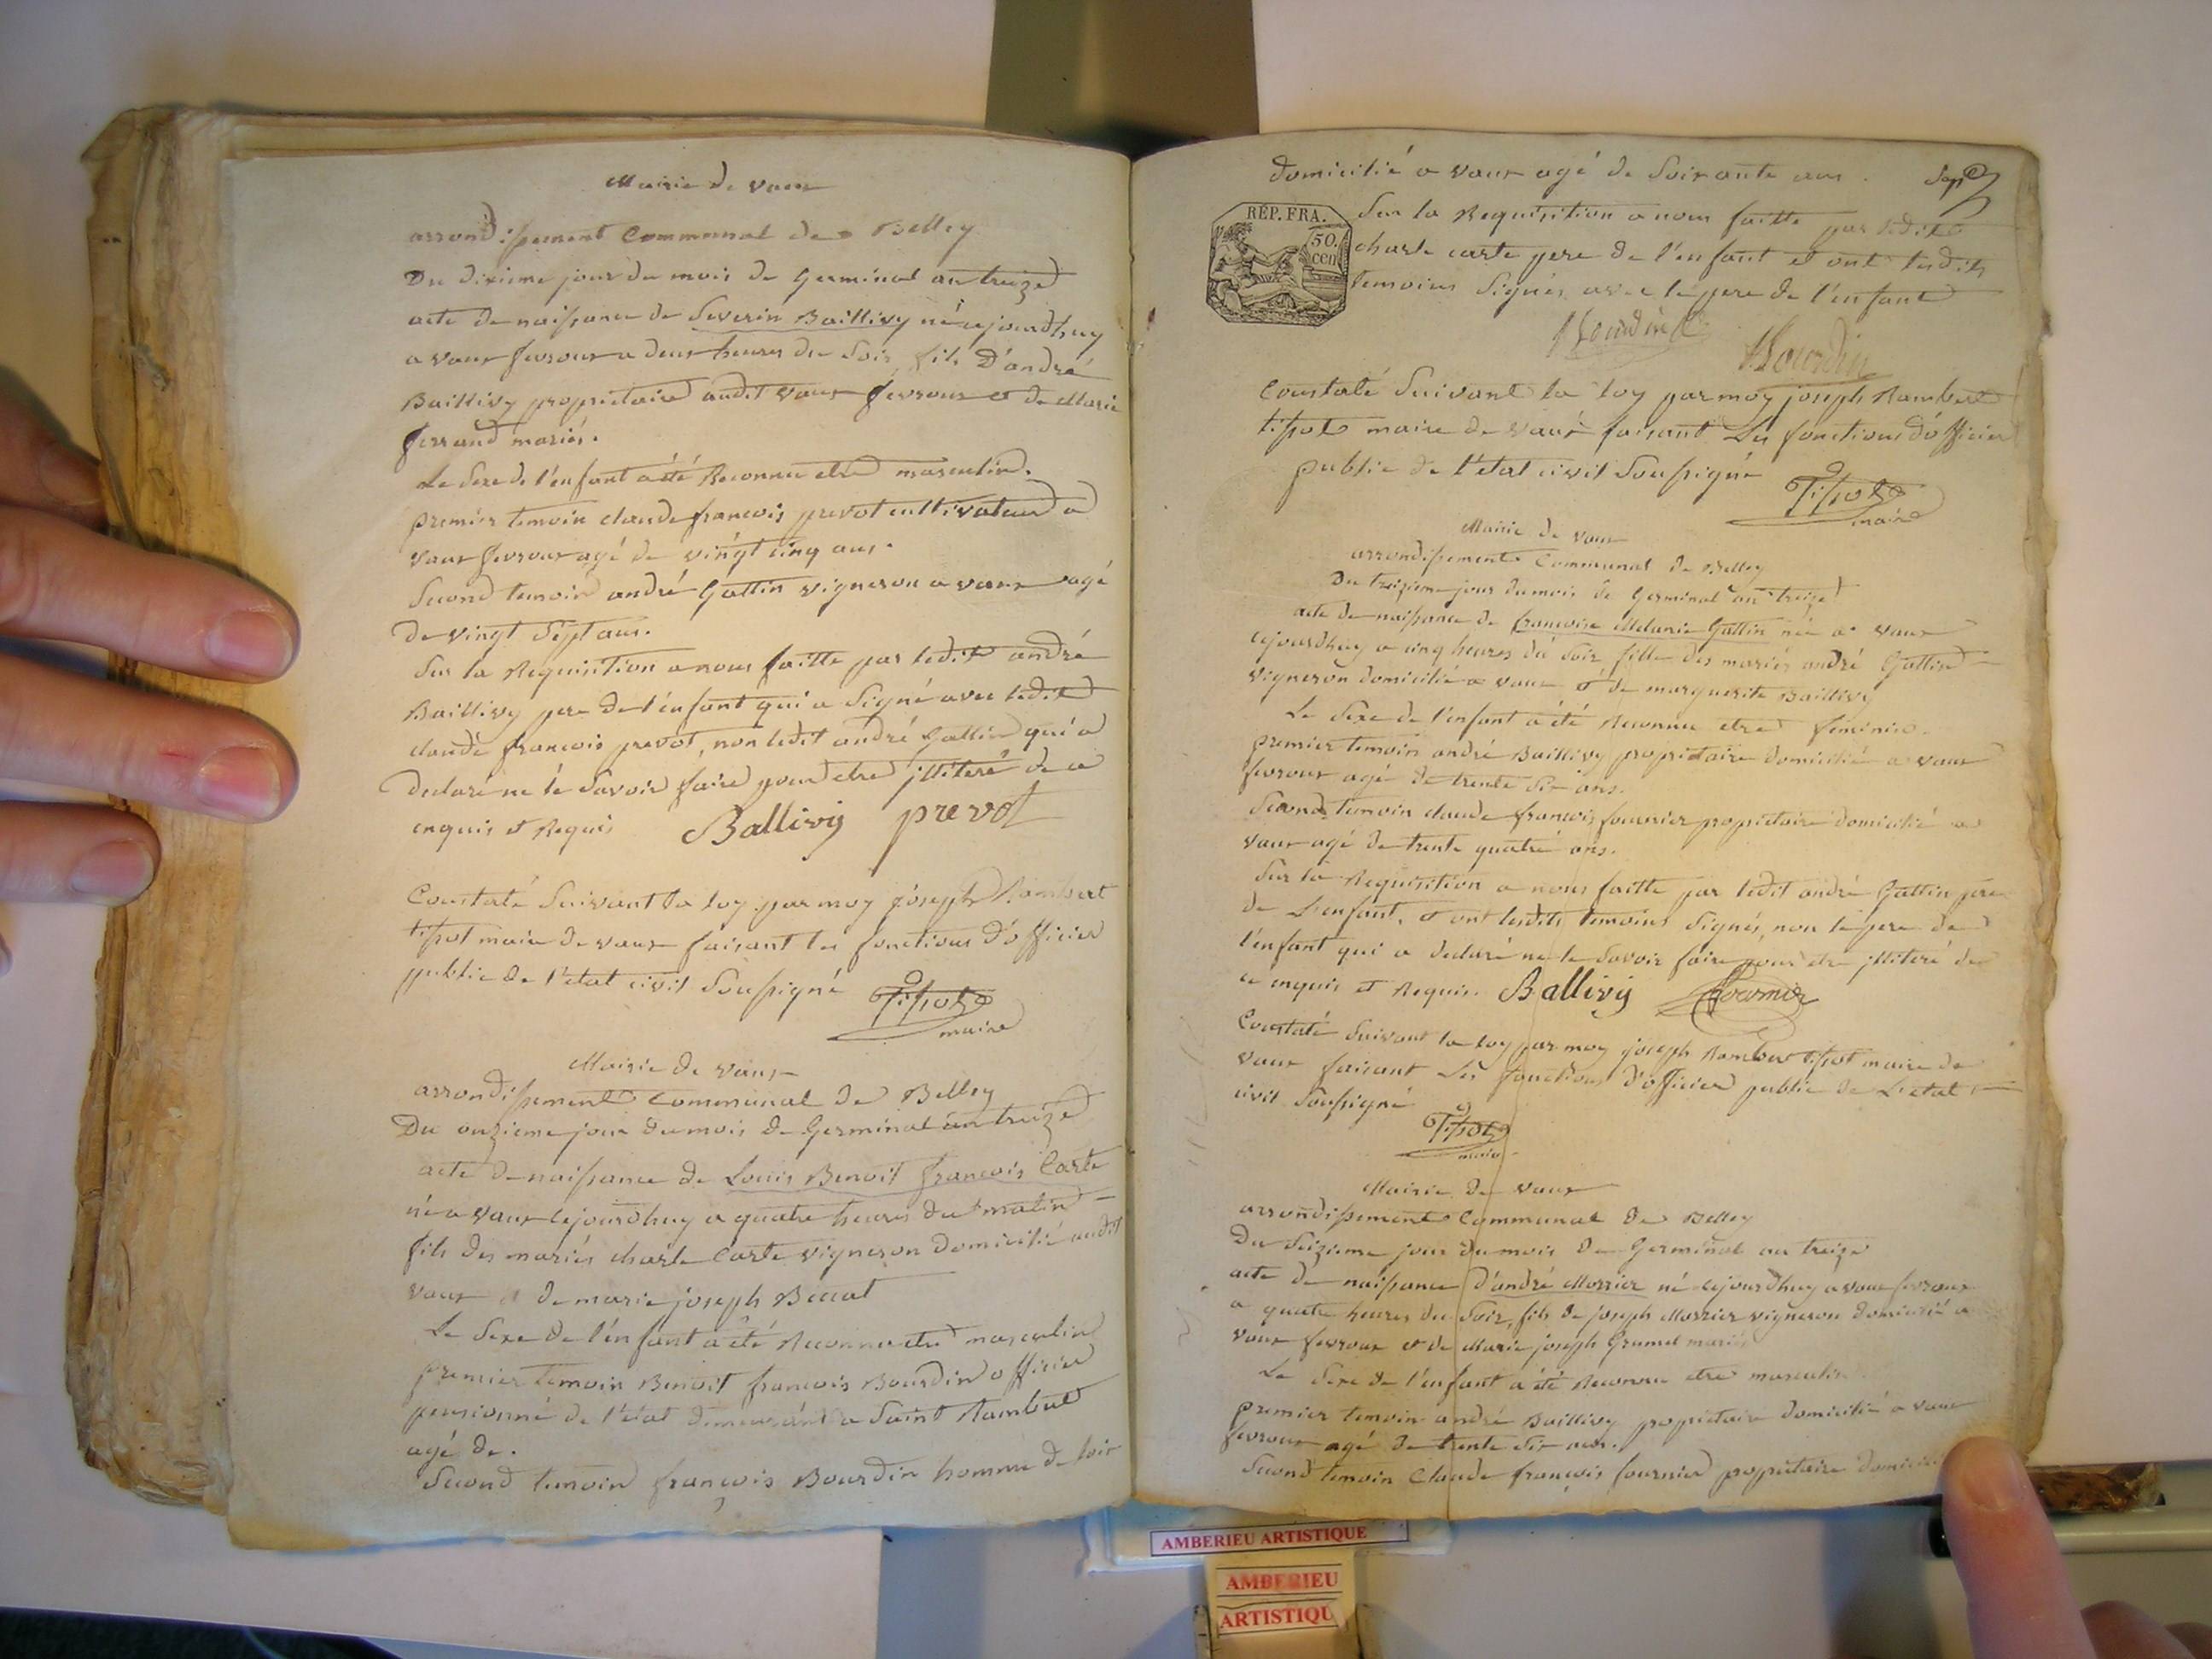 Mairie de vaux
arrondissement Communal de Belley
Du dixieme jour du mois de Germinal an treize
acte de naissance de Severin Baillivy né cejourdhuy
a vaux fevroux a deux heures du Soir fils D'andré
Baillivy proprietaire audit vaux fevroux et de Marie
ferrand mariés.
Le Sexe de l'enfant a été Reconnu etre masculin.
premier temoin claude françois prevot cultivateur a
vaux fevroux agé de vingt cinq ans.
Second temoin andré Gattin vigneron a vaux agé
de vingt Sept ans.
Sur la Requisition a nous faitte par ledit andré
Baillivy pere de l'enfant qui a Signé avec ledit
claude françois prevot, non ledit andré Gattin qui a
declaré ne le Savoir faire pour etre jlliteré de ce
enquis et Requis
Ballivy prevot
Constaté Suivant la loy par moy joseph Rambert
tissot maire de vaux faisant les fonctions d'officier
public de l'etat civil Soussigné
Tissot
maire
Mairie de vaux
arrondissement Communal de Belley
Du onzieme jour du mois de Germinal an treize
acte de naissance de Louis Benoit françois Carte
né a vaux cejourdhuy a quatre heures du matin
fils des mariés charle Carte vigneron domicilié audit
vaux et de marie joseph Beccat
Le Sexe de l'enfant a été Reconnu etre masculin
premier temoin Benoit françois Bourdin officier
pensionné de l'etat demeurant a Saint Rambert
agé de.
Second temoin françois Bourdin homme de loix
domicilié a vaux agé de Soixante ans.
Sept
REP. FRA.
50.
cen
Sur la Requisition a nous faitte par ledit
charle carte pere de l'enfant et ont lesdits
temoins Signés avec le pere de l'enfant
Bourdin
Constaté Suivant la loy par moy joseph Rambert
tissot maire de vaux faisant Les fonctions d'officier
public de l'etat civil Soussigné
Tissot
maire
Mairie de vaux
arrondissement Communal de Belley
Du treizieme jour du mois de Germinal an treize
acte de naissance de françoise Melanie Gattin née a vaux
cejourdhuy a cinq heures du Soir fille des mariés andré Gattin
vigneron domicilié a vaux et de marguerite Baillivy
Le Sexe de l'enfant a été Reconnu etre feminin.
premier temoin andré Baillivy proprietaire domicilié a vaux
fevroux agé de trente Six ans.
Second temoin claude françois fournier proprietaire domicilié a
vaux agé de trente quatre ans.
Sur la Requisition a nous faitte par ledit andré Gattin pere
de L'enfant, et ont lesdits temoins Signés, non le pere de
l'enfant qui a declaré ne le Savoir faire pour etre jlliteré de
ce enquis et Requis. Ballivy fournier
Constaté Suivant la loy par moy joseph Rambert tissot maire de
vaux faisant Les fonctions d'officier public de L'etat
civil Soussigné
Tissot
maire
Mairie de vaux
arrondissement Communal de Belley
Du Seizieme jour du mois de Germinal an treize
acte de naissance d'andré Morrier né cejourdhuy a vaux fevroux
a quatre heures du Soir, fils de joseph Morrier vigneron domicilié a
vaux fevroux et de Marie joseph Grumel mariés
Le Sexe de l'enfant a été Reconnu etre masculin
premier temoin andré Baillivy proprietaire domicilié a vaux
fevroux agé de trente Six ans.
Second temoin Claude françois fournier proprietaire domicilié
AMBERIEU ARTISTIQUE
AMBERIEU
ARTISTIQU